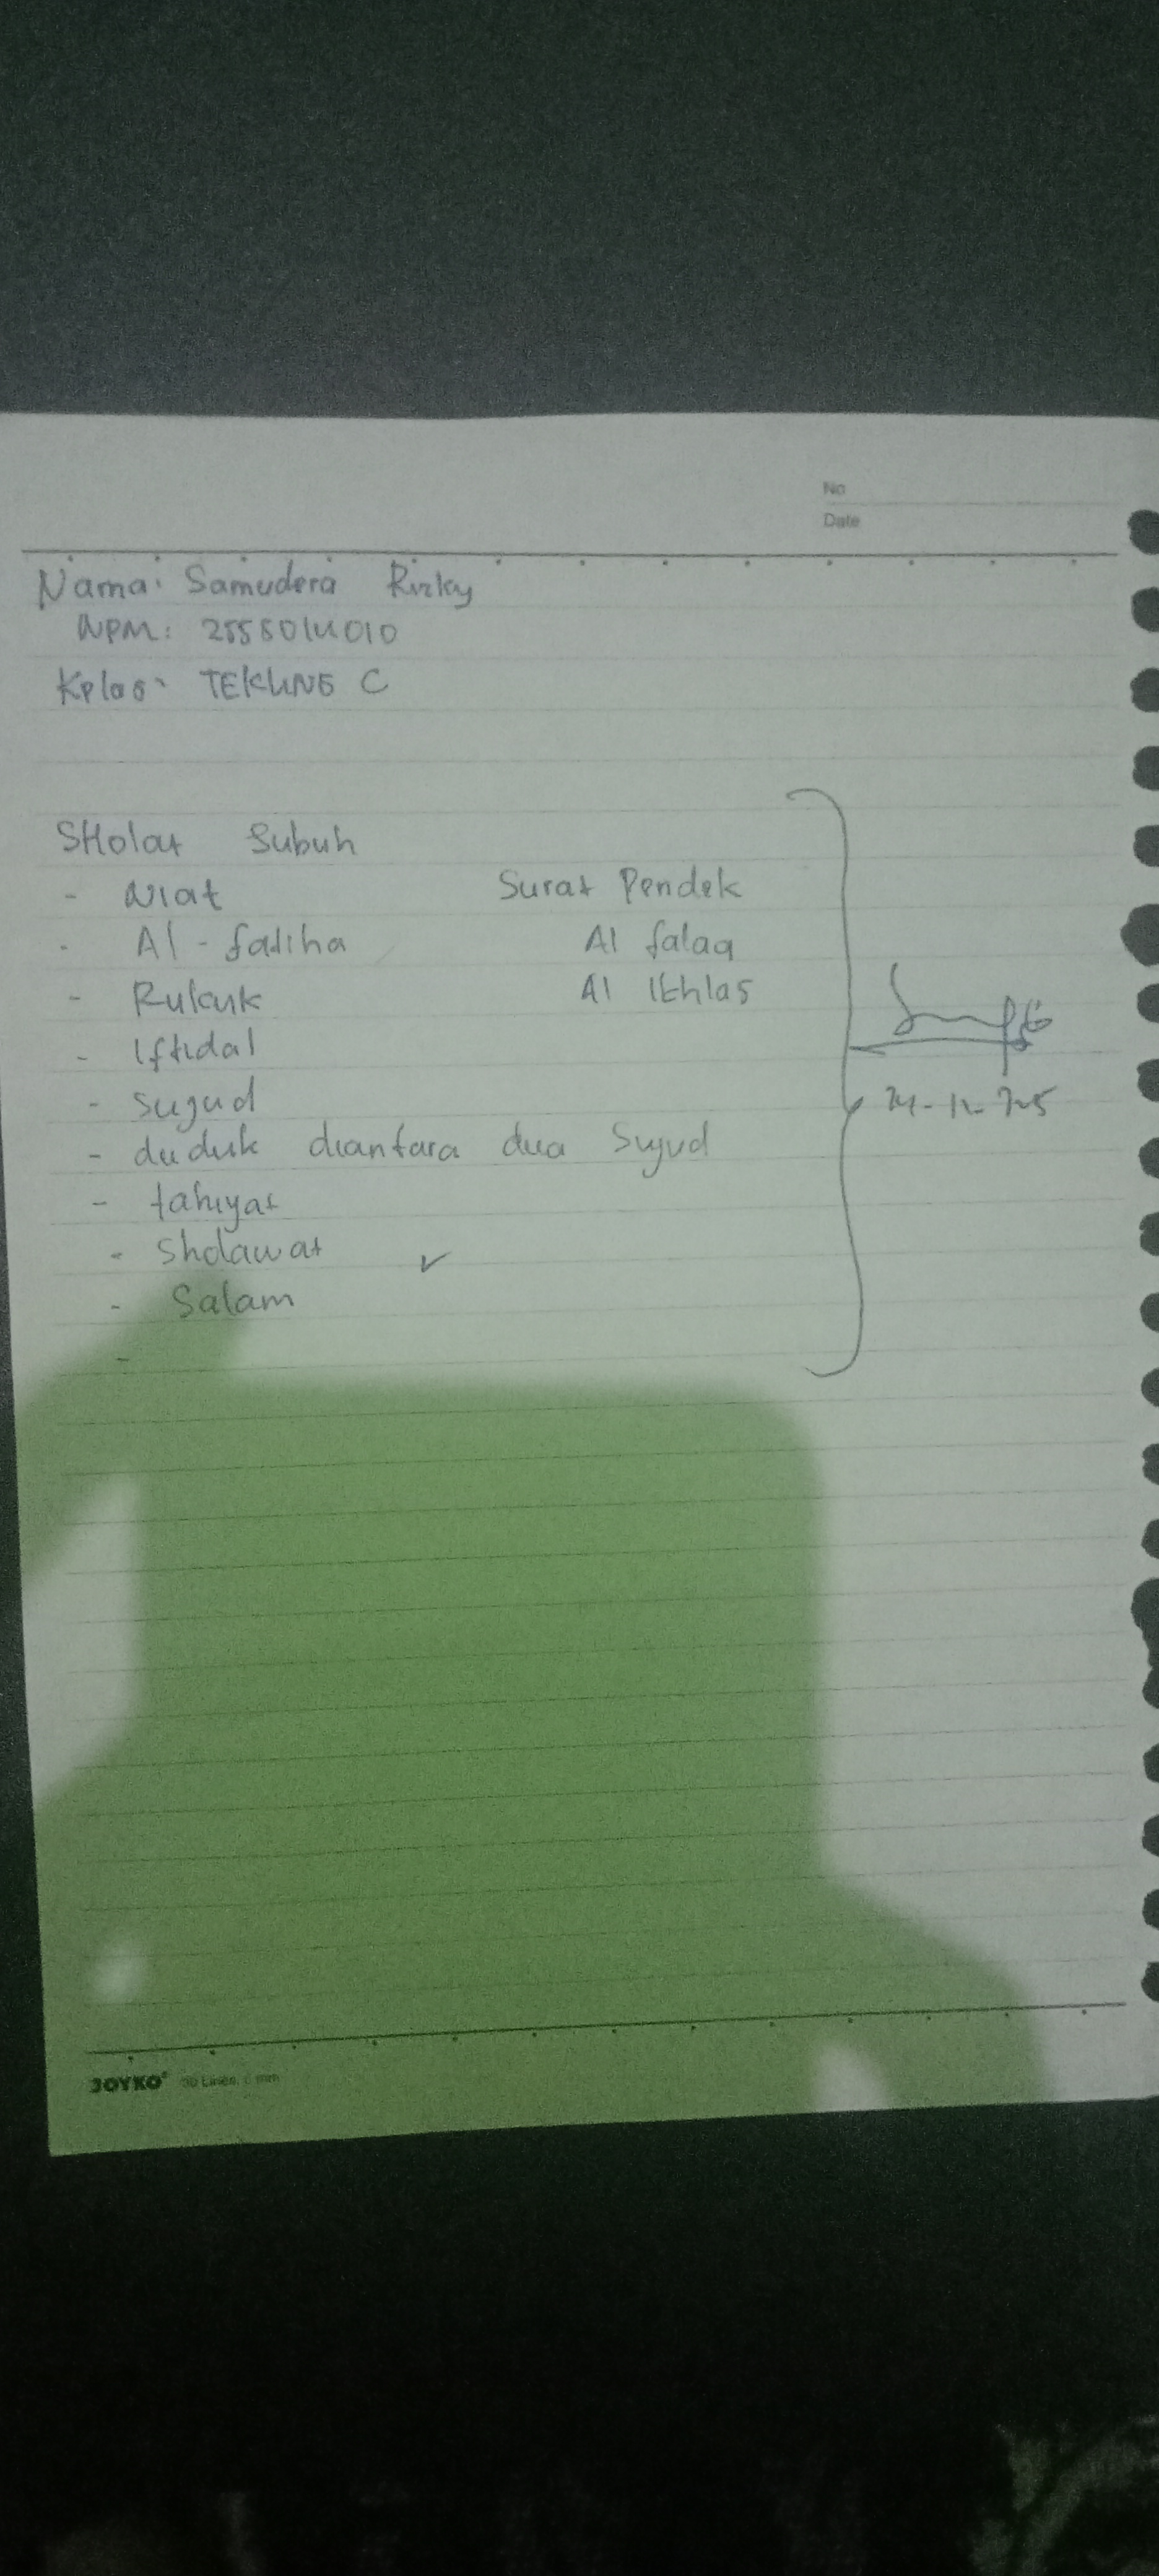 No
Date
Nama: Samudera Rizky
NPM: 2558014010
Kelas: TEKLING C
SHolat Subuh
- Niat Surat Pendek
- Al - fatiha Al falaq
- Rukuk Al Ikhlas
- Iftidal
- sujud
- duduk diantara dua Sujud
- tahiyat
- Sholawat ✓
- Salam
-
JOYKO